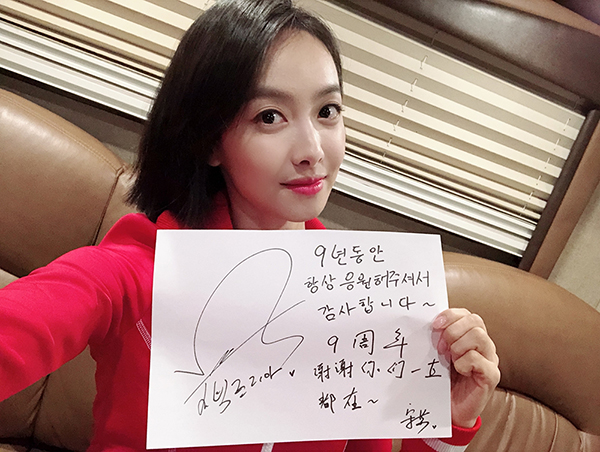 9년동안
항상 응원해주셔서
감사합니다~
9周年
谢谢你们一直
都在~
宋茜
빅토리아